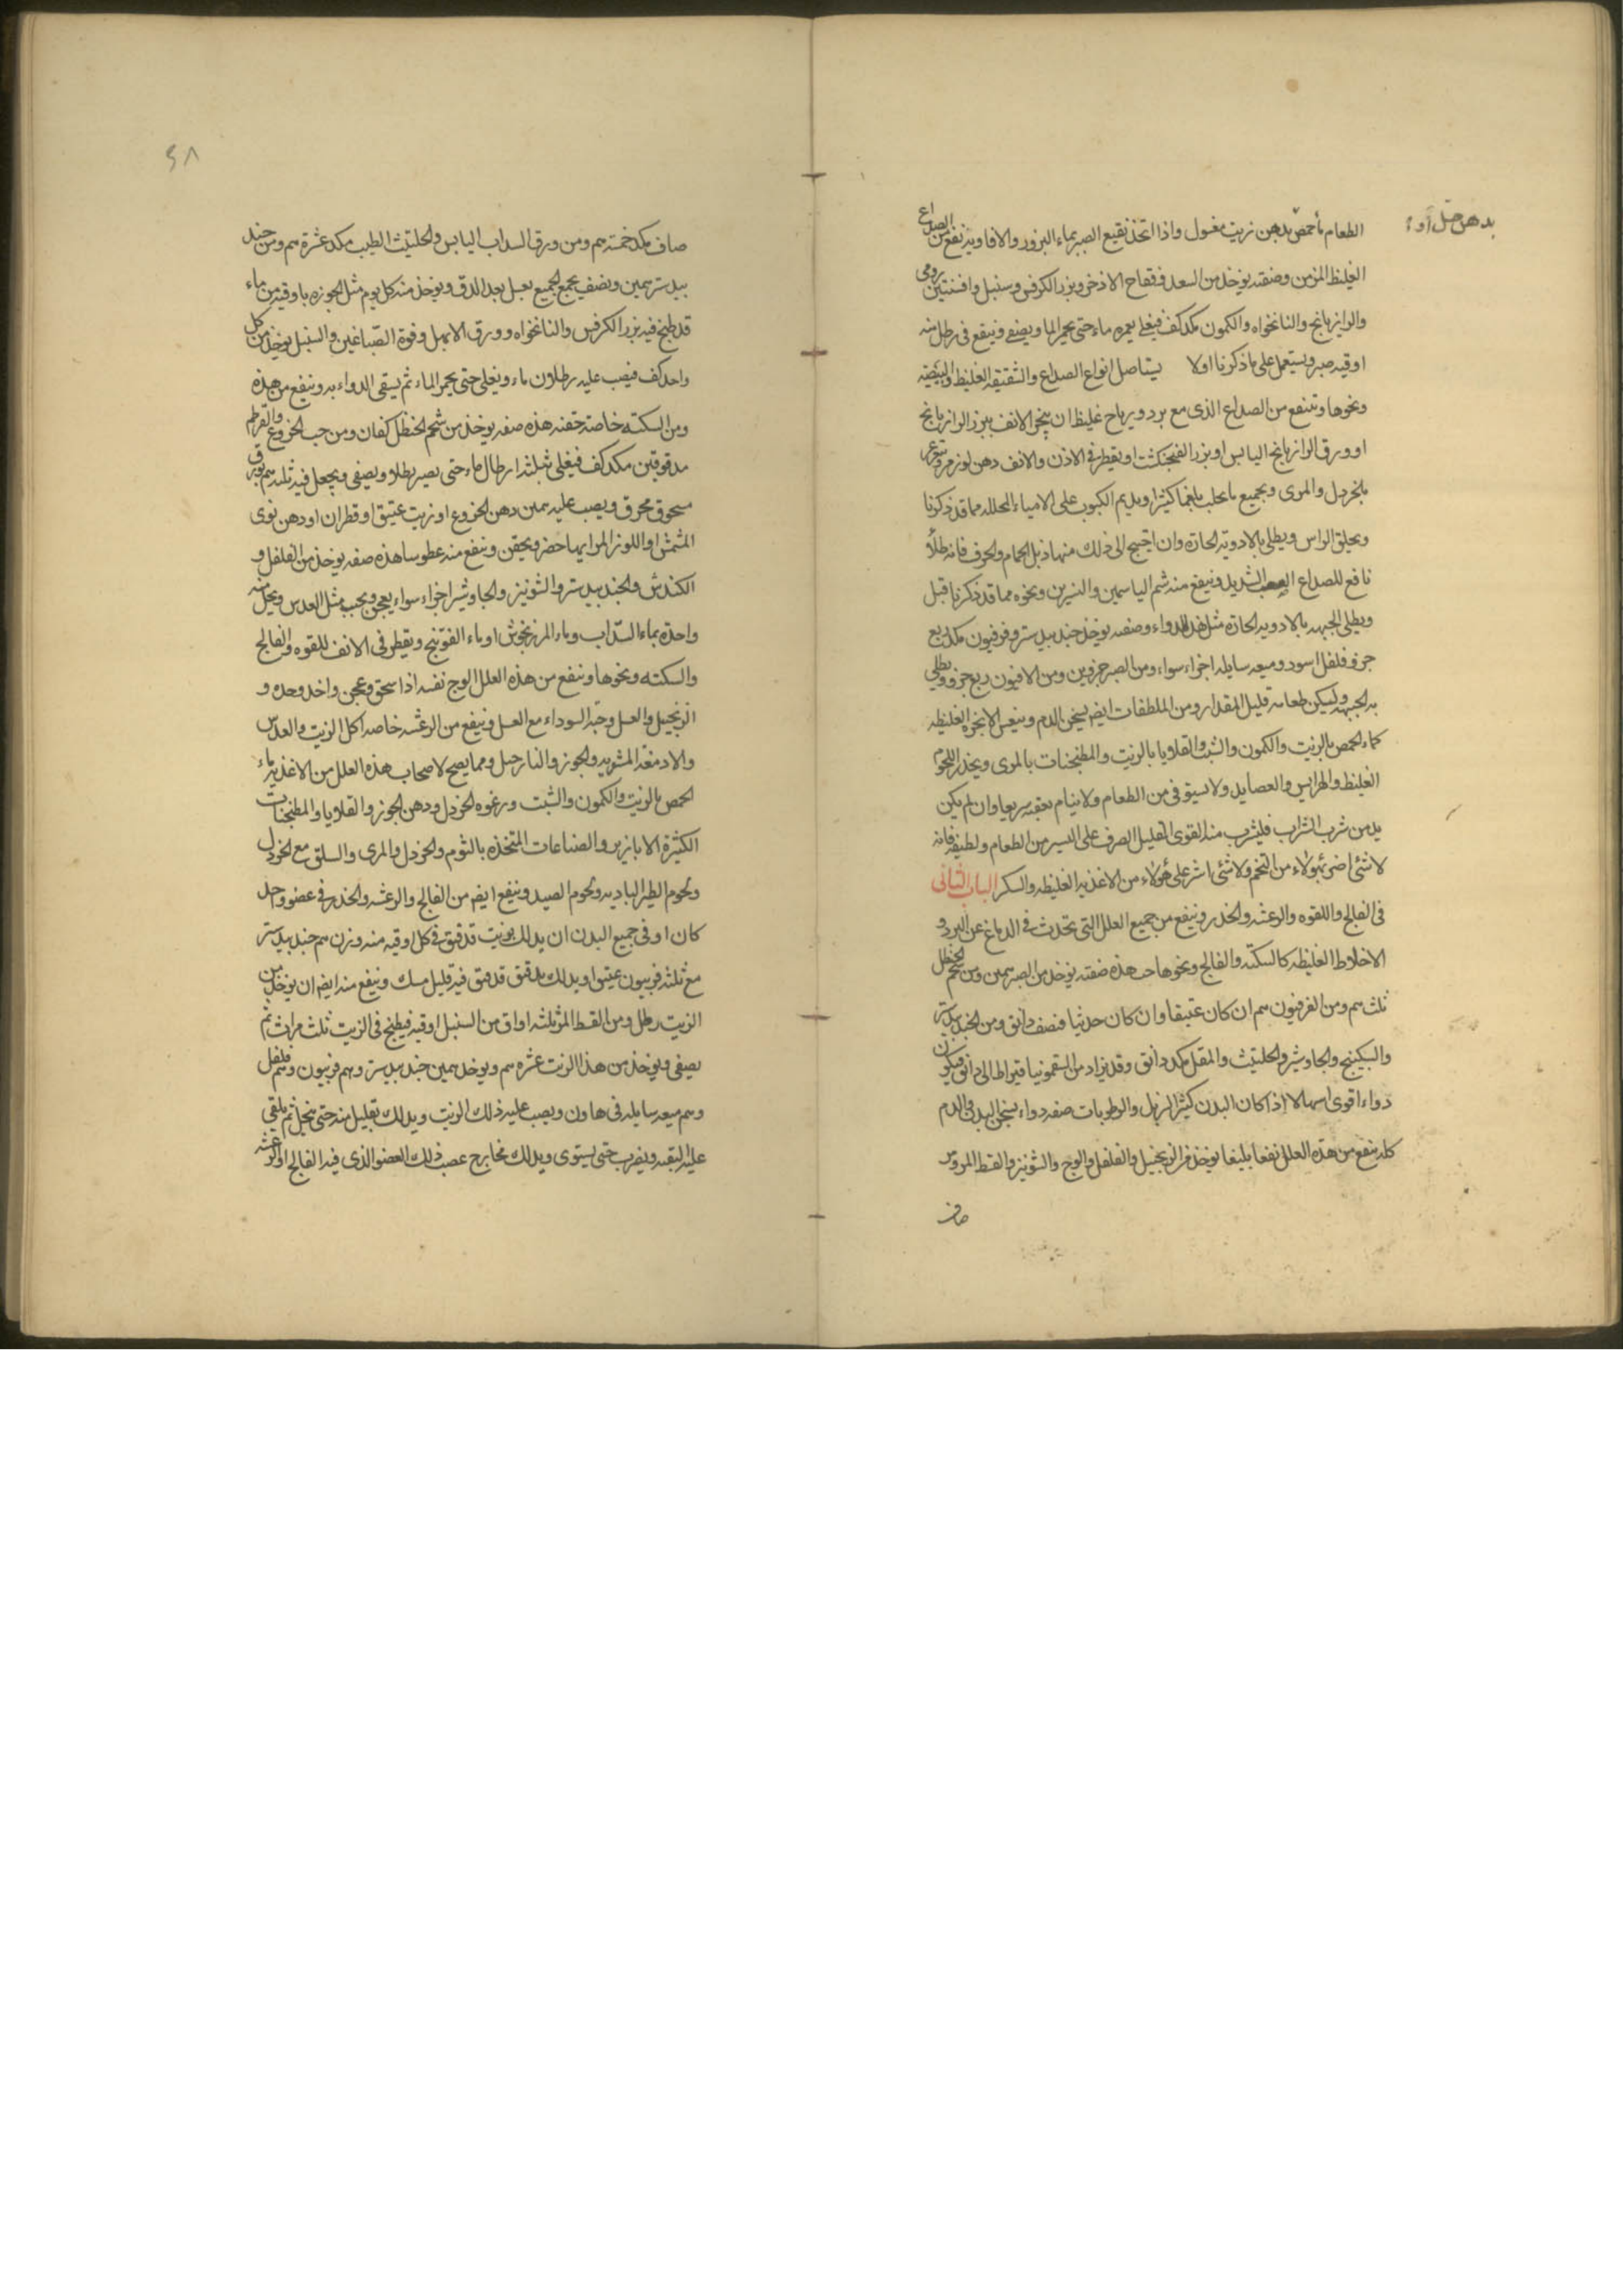 بدهن خل او
الطعام ماحمص بدهن زيت مغسول واذا اتخذ نقيع الصبر بماء البزور والافاويه نفع من الصداع
الغليظ المزمن وصفته يوخذ من السعد وفقاح الاذخر وبزر الكرفس وسنبل وافسنتين رومى
والرازيانج والنانخواه والكمون مكد كف فيغلى بغمره ماء حتى يحمر الما ويصفى وينقع فى رطل منه
اوقيه صبر ويستعمل على ما ذكرنا اولا يستاصل انواع الصداع والشقيقه الغليظه والبيضه
ونحوها وتنفع من الصداع الذى مع برد ورياح غليظ ان يبخر الانف ببزر الرازيانج
او ورق الرازيانج اليابس او بزر الفنجنكشت او يقطر فى الاذن والانف دهن لوز مر ويتغرغر
بالخردل والمرى وبجميع ما يحلب بلغما كثيرا ويديم الكبوب على الامياه المحلله مما قد ذكرنا
ويحلق الراس ويطلى بالادويه الحاره وان احتيج الى ذلك منها ذبل الحمام والحرف فانه طلاء
نافع للصداع الصعب الشديد وينفع منه شم الياسمين والنسرين ونحوه مما قد ذكرنا قبل
ويطلى الجبهه بالادويه الحاره مثل هذا الدواء وصفته يوخذ جند بيدستر وفرفيون مكد ربع
جزو فلفل اسود وميعه سايله اجزاء سواء ومن الصبر جزوين ومن الافيون ربع جزو ويطلى
به الجبهه وليكن طعامه قليل المقدار ومن الملطفات ايضم يسخن الدم وينعش الابخره الغليظه
كماء الحمص بالزيت والكمون والشبت والقلايا بالزيت والمطجنات بالمرى ويحذر اللحوم
الغليظ والهرايس والعصايد ولا يستوفى من الطعام ولا ينام بعقبه سريعا وان لم يكن
بد من شرب الشراب فليشرب منه القوى القليل الصرف على اليسير من الطعام ولطيفه فانه
لا شئ اضر بهولاء من التخم ولا شئ اشر على هولاء من الاغذيه الغليظه والسكر الباب الثانى
فى الفالج واللقوه والرعشه والخدر وينفع من جميع العلل التى تحدث فى الدماغ عن البرد و
الاخلاط الغليظه كالسكته والفالج ونحوها حب هذه صفته يوخذ من الصبر سمين ومن شحم الحنظل
ثلث سم ومن الفرفيون سم ان كان عتيقا وان كان حديثا فنصف دانق ومن الجند بيدستر
والسكبينج والجاوشير والحلتيث والمقل مكد دانق وقد يزاد من السقمونيا قيراط الى دانق فيكون
دواء اقوى اسهالا اذا كان البدن كثير الزبل والرطوبات صفه دواء يسخن البدن والدم
كله ينفع من هذه العلل نفعا بليغا يوخذ من الزنجبيل والفلفل والوج والشونيز والقسط المر وقر
صاف
٥٨
صاف مكد خمسه سم ومن ورق السداب اليابس والحلتيث الطيب مكد عشرة سم ومن جند
بيدستر سمين ونصف يجمع الجميع بعسل بعد الدق ويوخذ منه كل يوم مثل الجوزه باوقيه من ماء
قد طبخ فيه بزر الكرفس والنانخواه وورق الابهل وفوة الصباغين والسنبل يوخذ من كل
واحد كف فيصب عليه رطلون ماء ويغلى حتى يحمر الماء ثم يسقى الدواء به وينفع من هذه
ومن السكته خاصة حقنه هذه صفه يوخذ من شحم الحنظل كفان ومن حب الخروع والقرطم
مدقوقين مكد كف فيغلى بثلثه ارطال ماء حتى يصير رطلا ويصفى ويجعل فيه ثلثه سم بورق
مسحوق محرق ويصب عليه سمين دهن الخروع او زيت عتيق او قطران او دهن نوى
المشمش او اللوز المر ايها حضر ويحقن وينفع منه عطوسا هذه صفه يوخذ من الفلفل و
الكندش والجند بيدستر والشونيز والجاوشير اجزاء سواء يعجن ويحبب مثل العدس ويحل منه
واحدة بماء السداب وماء المرزنجوش او ماء الفوتنج ويقطر فى الانف للقوه والفالج
والسكته ونحوها وينفع من هذه العلل الوج نفسه اذا سحق وعجن واخذ وحده و
الزنجبيل والعسل وحبه السوداء مع العسل وينفع من الرعشه خاصه اكل الزيت والعدس
والادمغه المشويه والجوز والنارجيل ومما يصح لاصحاب هذه العلل من الاغذيه ماء
الحمص بالزيت والكمون والشبت ورغوه الخردل ودهن الجوز والقلايا والمطجنات
الكثيرة الابازير والصناعات المتخذه بالثوم والخردل والمرى والسلق مع الخردل
ولحوم الطير الباديه ولحوم الصيد وينفع ايضم من الفالج والرعشه والخدر فى عضو واحد
كان او فى جميع البدن ان يدلك بزيت قد فتق فى كل اوقيه منه وزن سم جند بيدستر
مع ثلثه فربيون عتيق او يدلك بدهن قد فتق فيه قليل مسك وينفع منه ايضم ان يوخذ من
الزيت رطل ومن القسط المر ثلثه اواق من السنبل اوقيه فيطبخ فى الزيت ثلث مرات ثم
يصفى ويوخذ من هذا الزيت عشره سم ويوخذ سمين جند بيدستر وسم فربيون وسم فلفل
وسم ميعه سايله فى هاون ويصب عليه ذلك الزيت ويدلك بقليل منه حتى ينحل ثم يلقى
عليه البقيه ويضرب حتى يستوى ويدلك مخارج عصب ذلك العضو الذى فيه الفالج او الرعشه